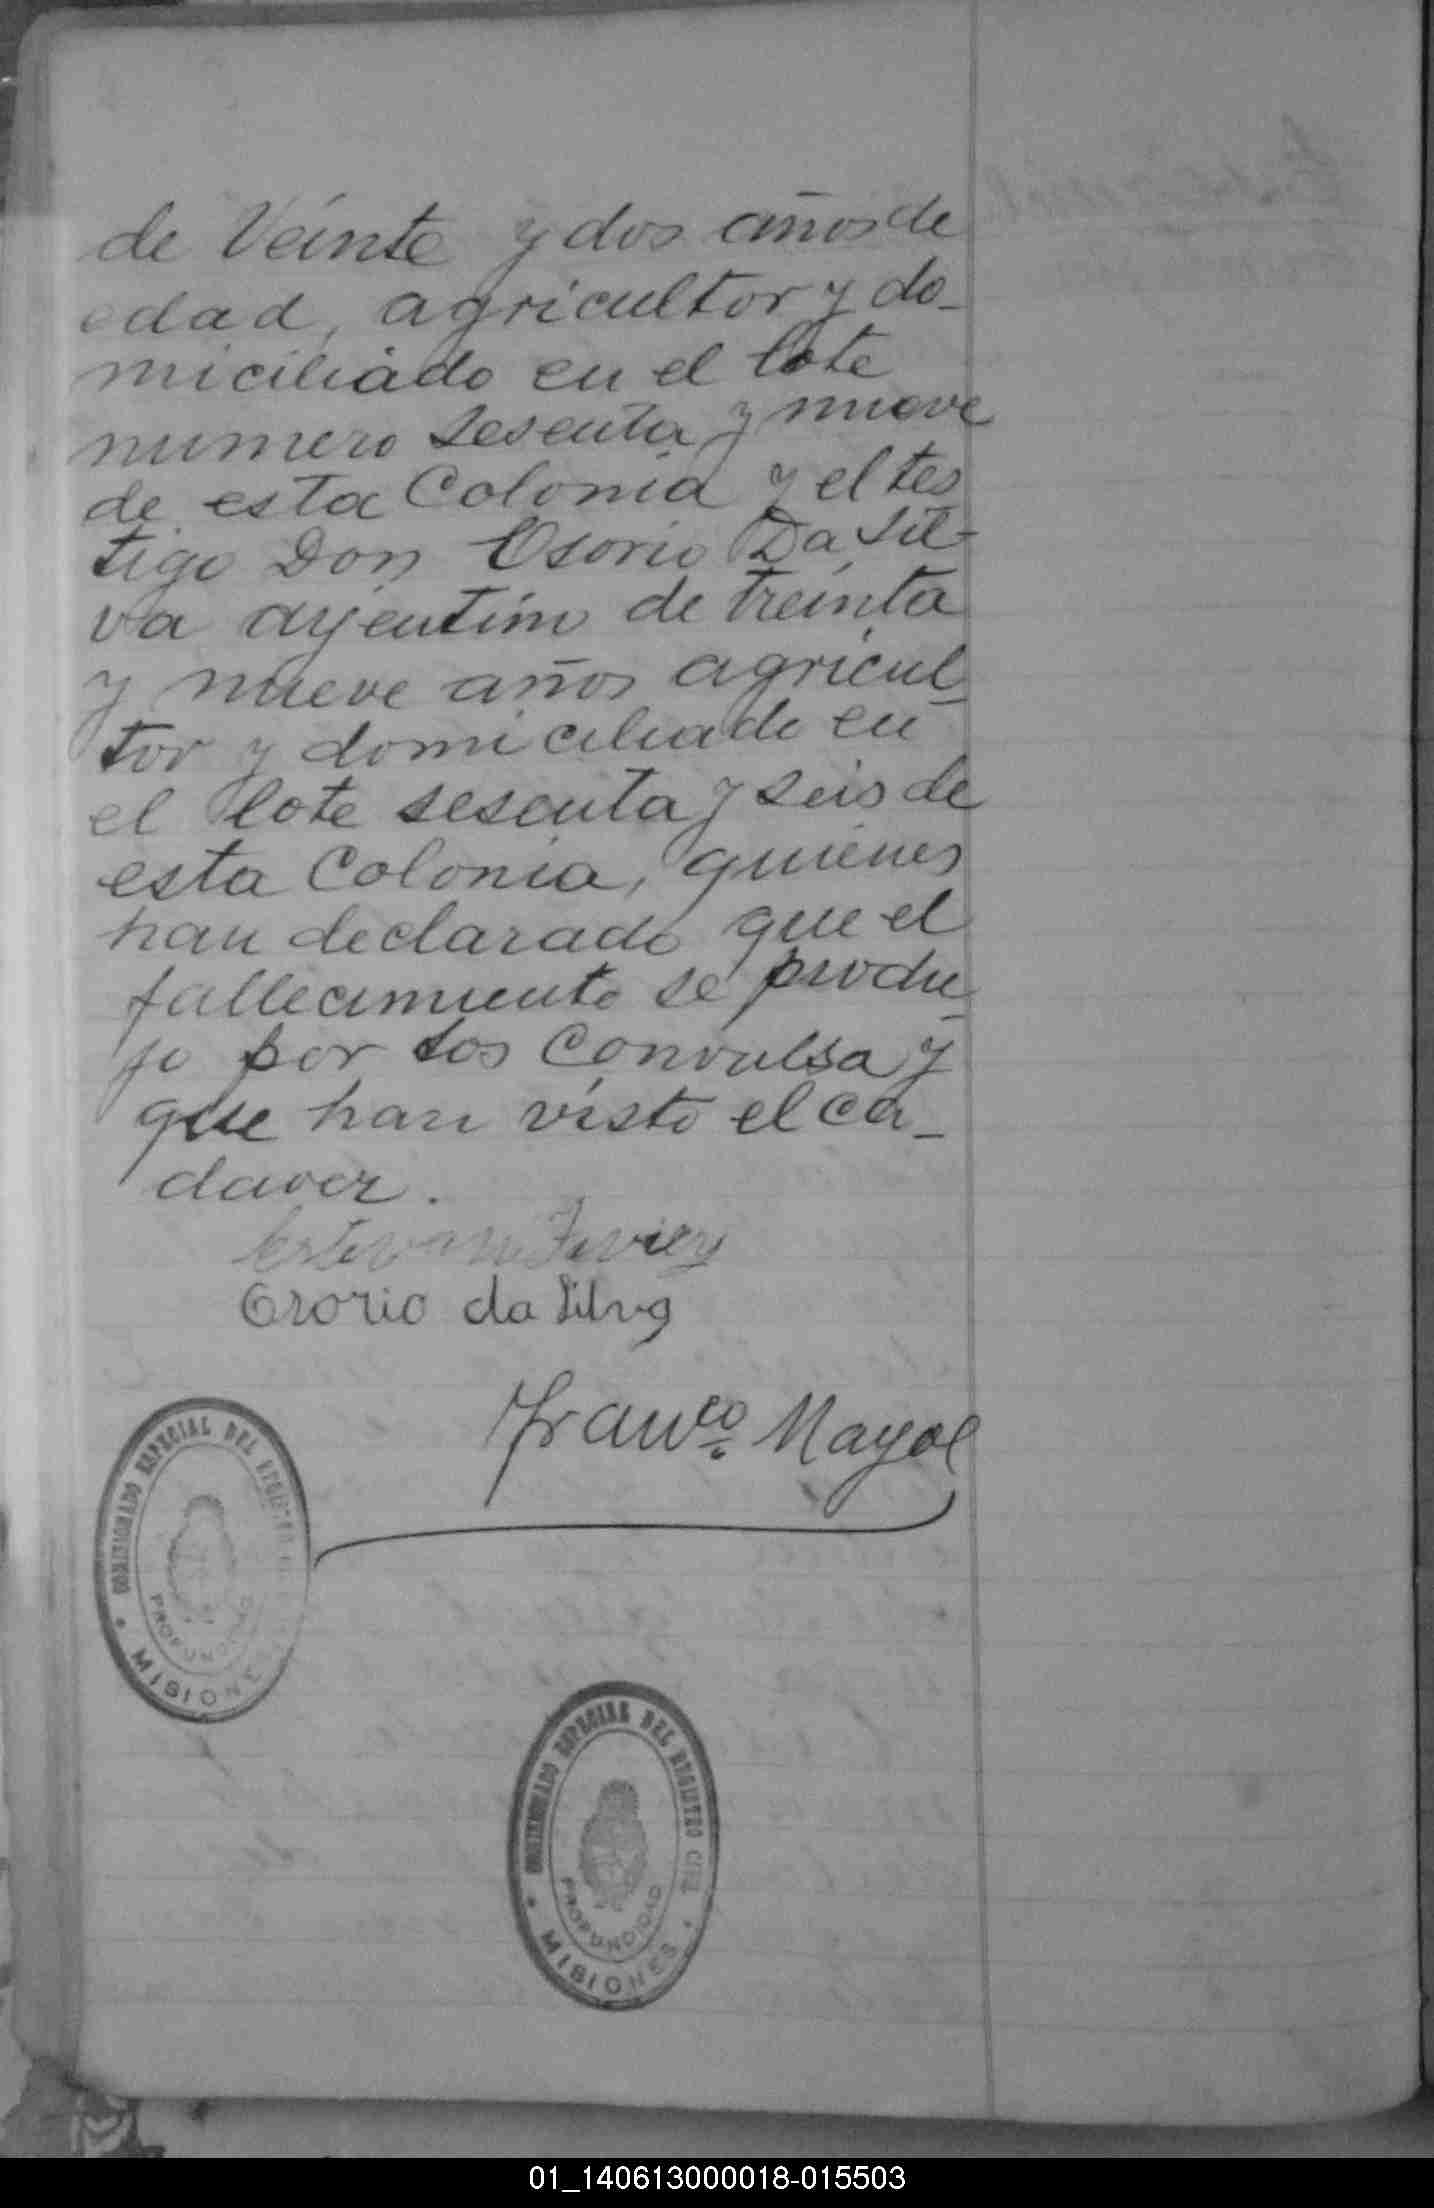 de Veinte y dos años de
edad, agricultor y do-
miciliado en el lote
numero sesenta y nueve
de esta Colonia y el tes
tigo Don Osorio Da Sil-
va arjentino de treinta
y nueve años agricul-
tor y domiciliado en
el lote sesenta y seis de
esta Colonia, quienes
han declarado que el
fallecimiento se produ-
jo por tos Convulsa y
que han visto el ca-
daver.
Estevan
Osorio da Silva
Franco. Mayol
COMISIONADO ESPECIAL DEL REGISTRO
PROFUNDIDAD
MISIONES
COMISIONADO ESPECIAL DEL REGISTRO CIVIL
PROFUNDIDAD
MISIONES
01_140613000018-015503